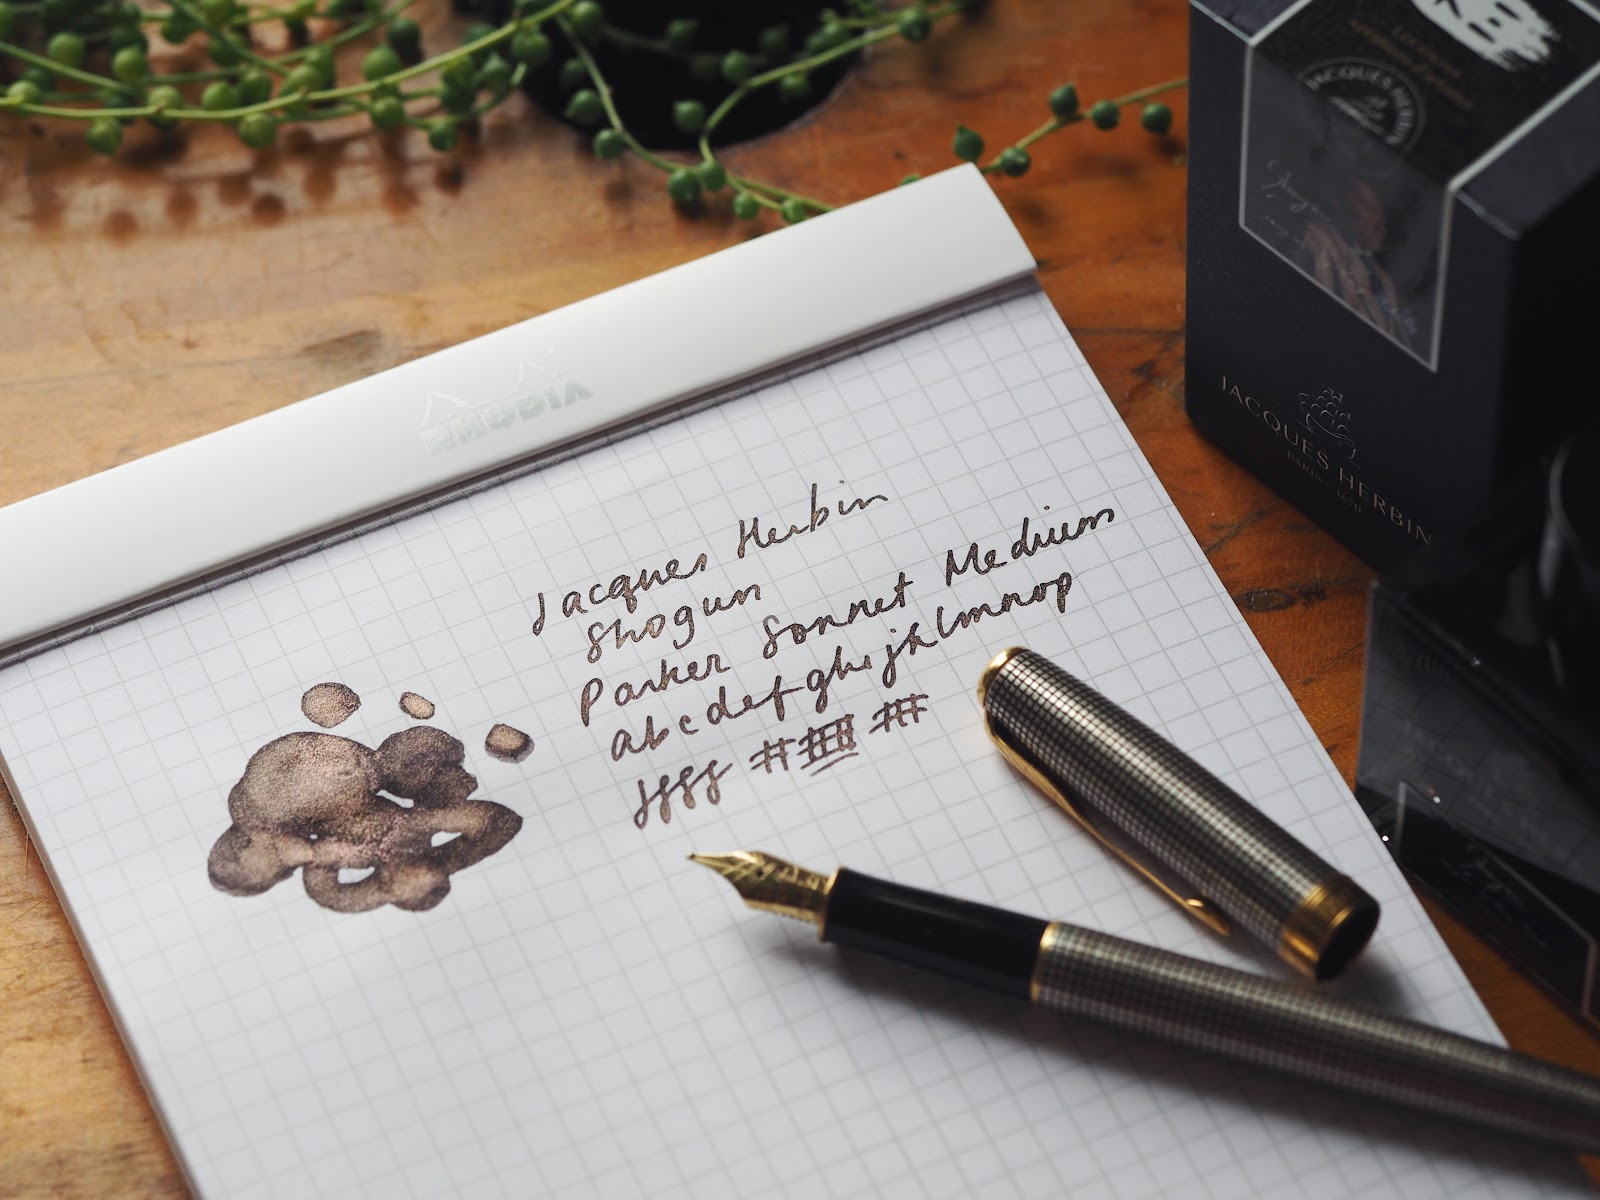 JACQUES HERBIN
JACQUES HERBIN
PARIS - 1670
RHODIA
Jacques Herbin
Shogun
Parker Sonnet Medium
abcdefghijklmnop